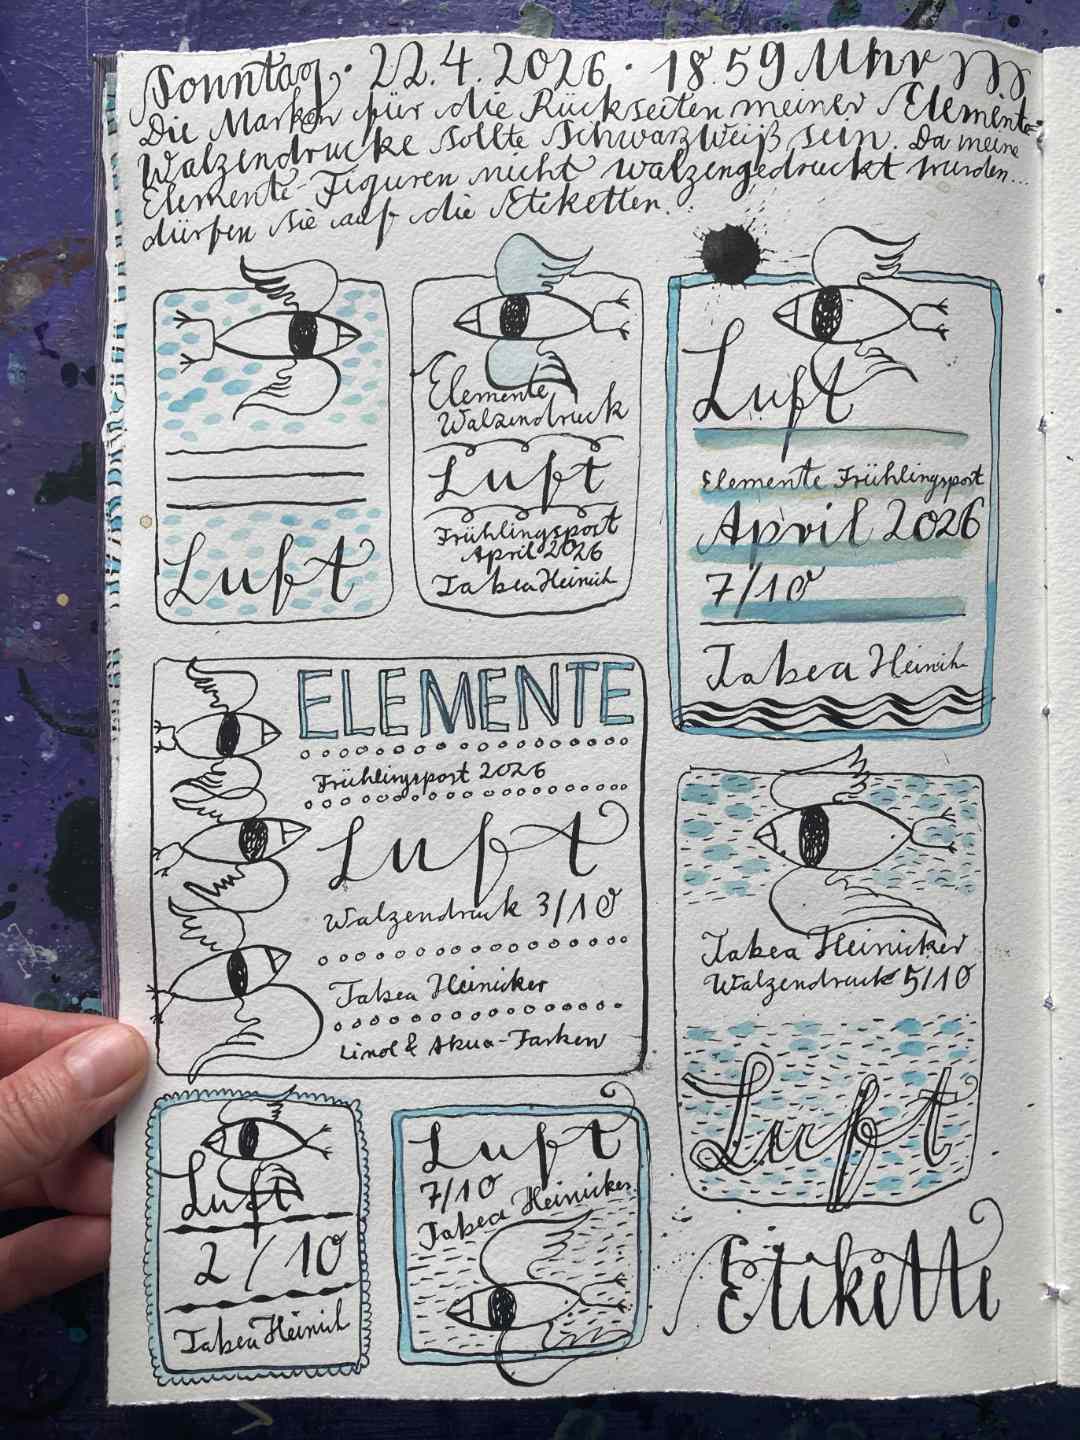 Sonntag · 22.4.2026 · 18:59 Uhr
Die Marken für die Rückseiten meiner Elemente-
Walzendrucke sollte Schwarzweiß sein. Da meine
Elemente-Figuren nicht walzengedruckt wurden...
dürfen sie auf die Etiketten.
Luft
Elemente
Walzendruck
Luft
Frühlingspost
April 2026
Tabea Heinich
Luft
Elemente Frühlingspost
April 2026
7/10
Tabea Heinich
ELEMENTE
Frühlingspost 2026
Luft
Walzendruck 3/10
Tabea Heinicker
Linol & Akua-Farben
Tabea Heinicker
Walzendruck 5/10
Luft
Luft
2/10
Tabea Heinich
Luft
7/10
Tabea Heinicker
Etikette